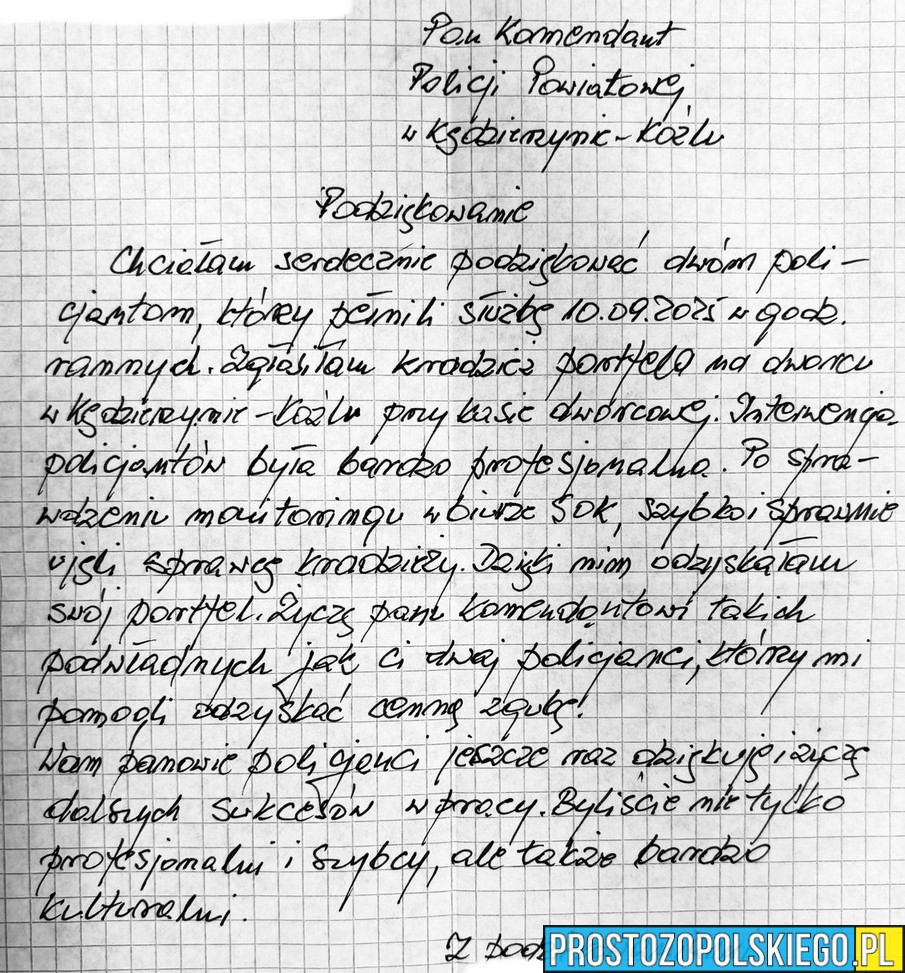 Pan Komendant
Policji Powiatowej
w Kędzierzynie-Koźlu
Podziękowanie
Chciałam serdecznie podziękować dwóm poli-
cjantom, którzy pełnili służbę 10.09.2025 w godz.
rannych. Zgłosiłam kradzież portfela na dworcu
w Kędzierzynie-Koźlu przy kasie dworcowej. Interwencja
policjantów była bardzo profesjonalna. Po spra-
wdzeniu monitoringu w biurze SOK, szybko i sprawnie
ujęli sprawcę kradzieży. Dzięki nim odzyskałam
swój portfel. Życzę panu komendantowi takich
podwładnych jak ci dwaj policjanci, którzy mi
pomogli odzyskać cenną zgubę!
Wam panowie policjanci jeszcze raz dziękuję i życzę
dalszych sukcesów w pracy. Byliście nie tylko
profesjonalni i szybcy, ale także bardzo
kulturalni.
Z
PROSTOZOPOLSKIEGO.PL